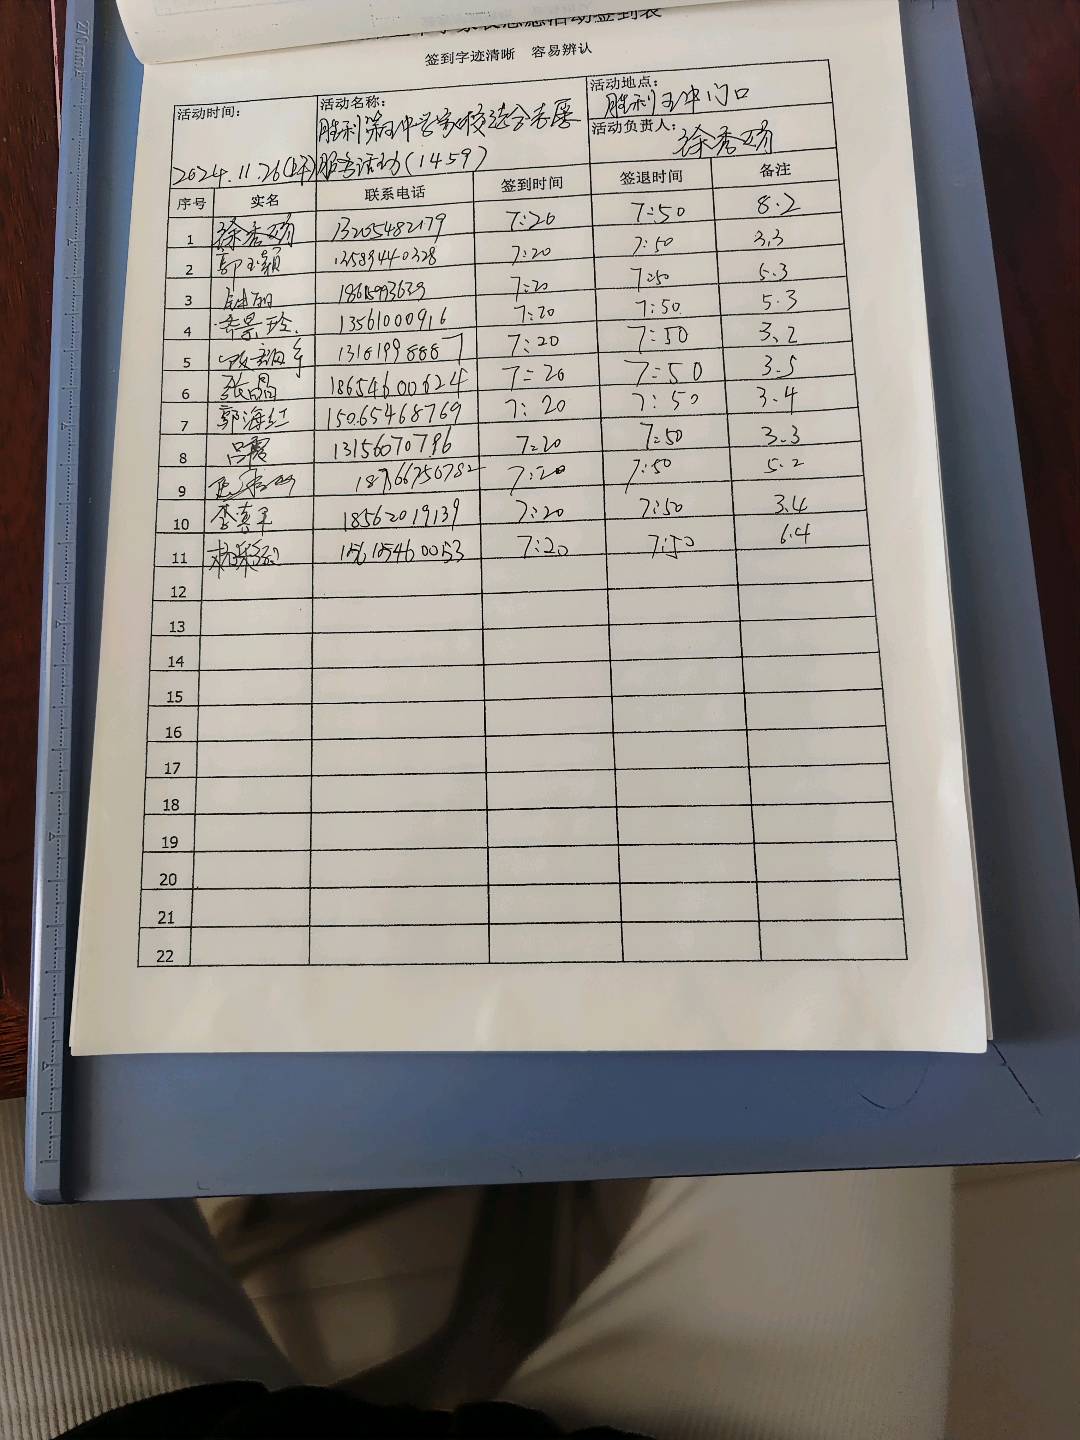 活动签到表
签到字迹清晰 容易辨认
活动时间: 活动名称: 活动地点:
胜利第五中学家校 志愿 胜利五中门口
活动负责人: 徐秀
2024.11.26(上午) 服务活动(1459)
序号 实名 联系电话 签到时间 签退时间 备注
1 徐秀 13205482179 7:20 7:50 8.2
2 郭玉颖 13589440328 7:20 7:50 3.3
3 7:20 7:50 5.3
4 齐景玲 13561000916 7:20 7:50 5.3
5 13181998887 7:20 7:50 3.2
6 张晶 18654600624 7:20 7:50 3.5
7 郭海红 15065468769 7:20 7:50 3.4
8 吕霞 13156070796 7:20 7:50 3.3
9 18766750782 7:20 7:50 5.2
10 李真 18562019139 7:20 7:50 3.4
11 7:20 7:50 6.4
12
13
14
15
16
17
18
19
20
21
22
270mm